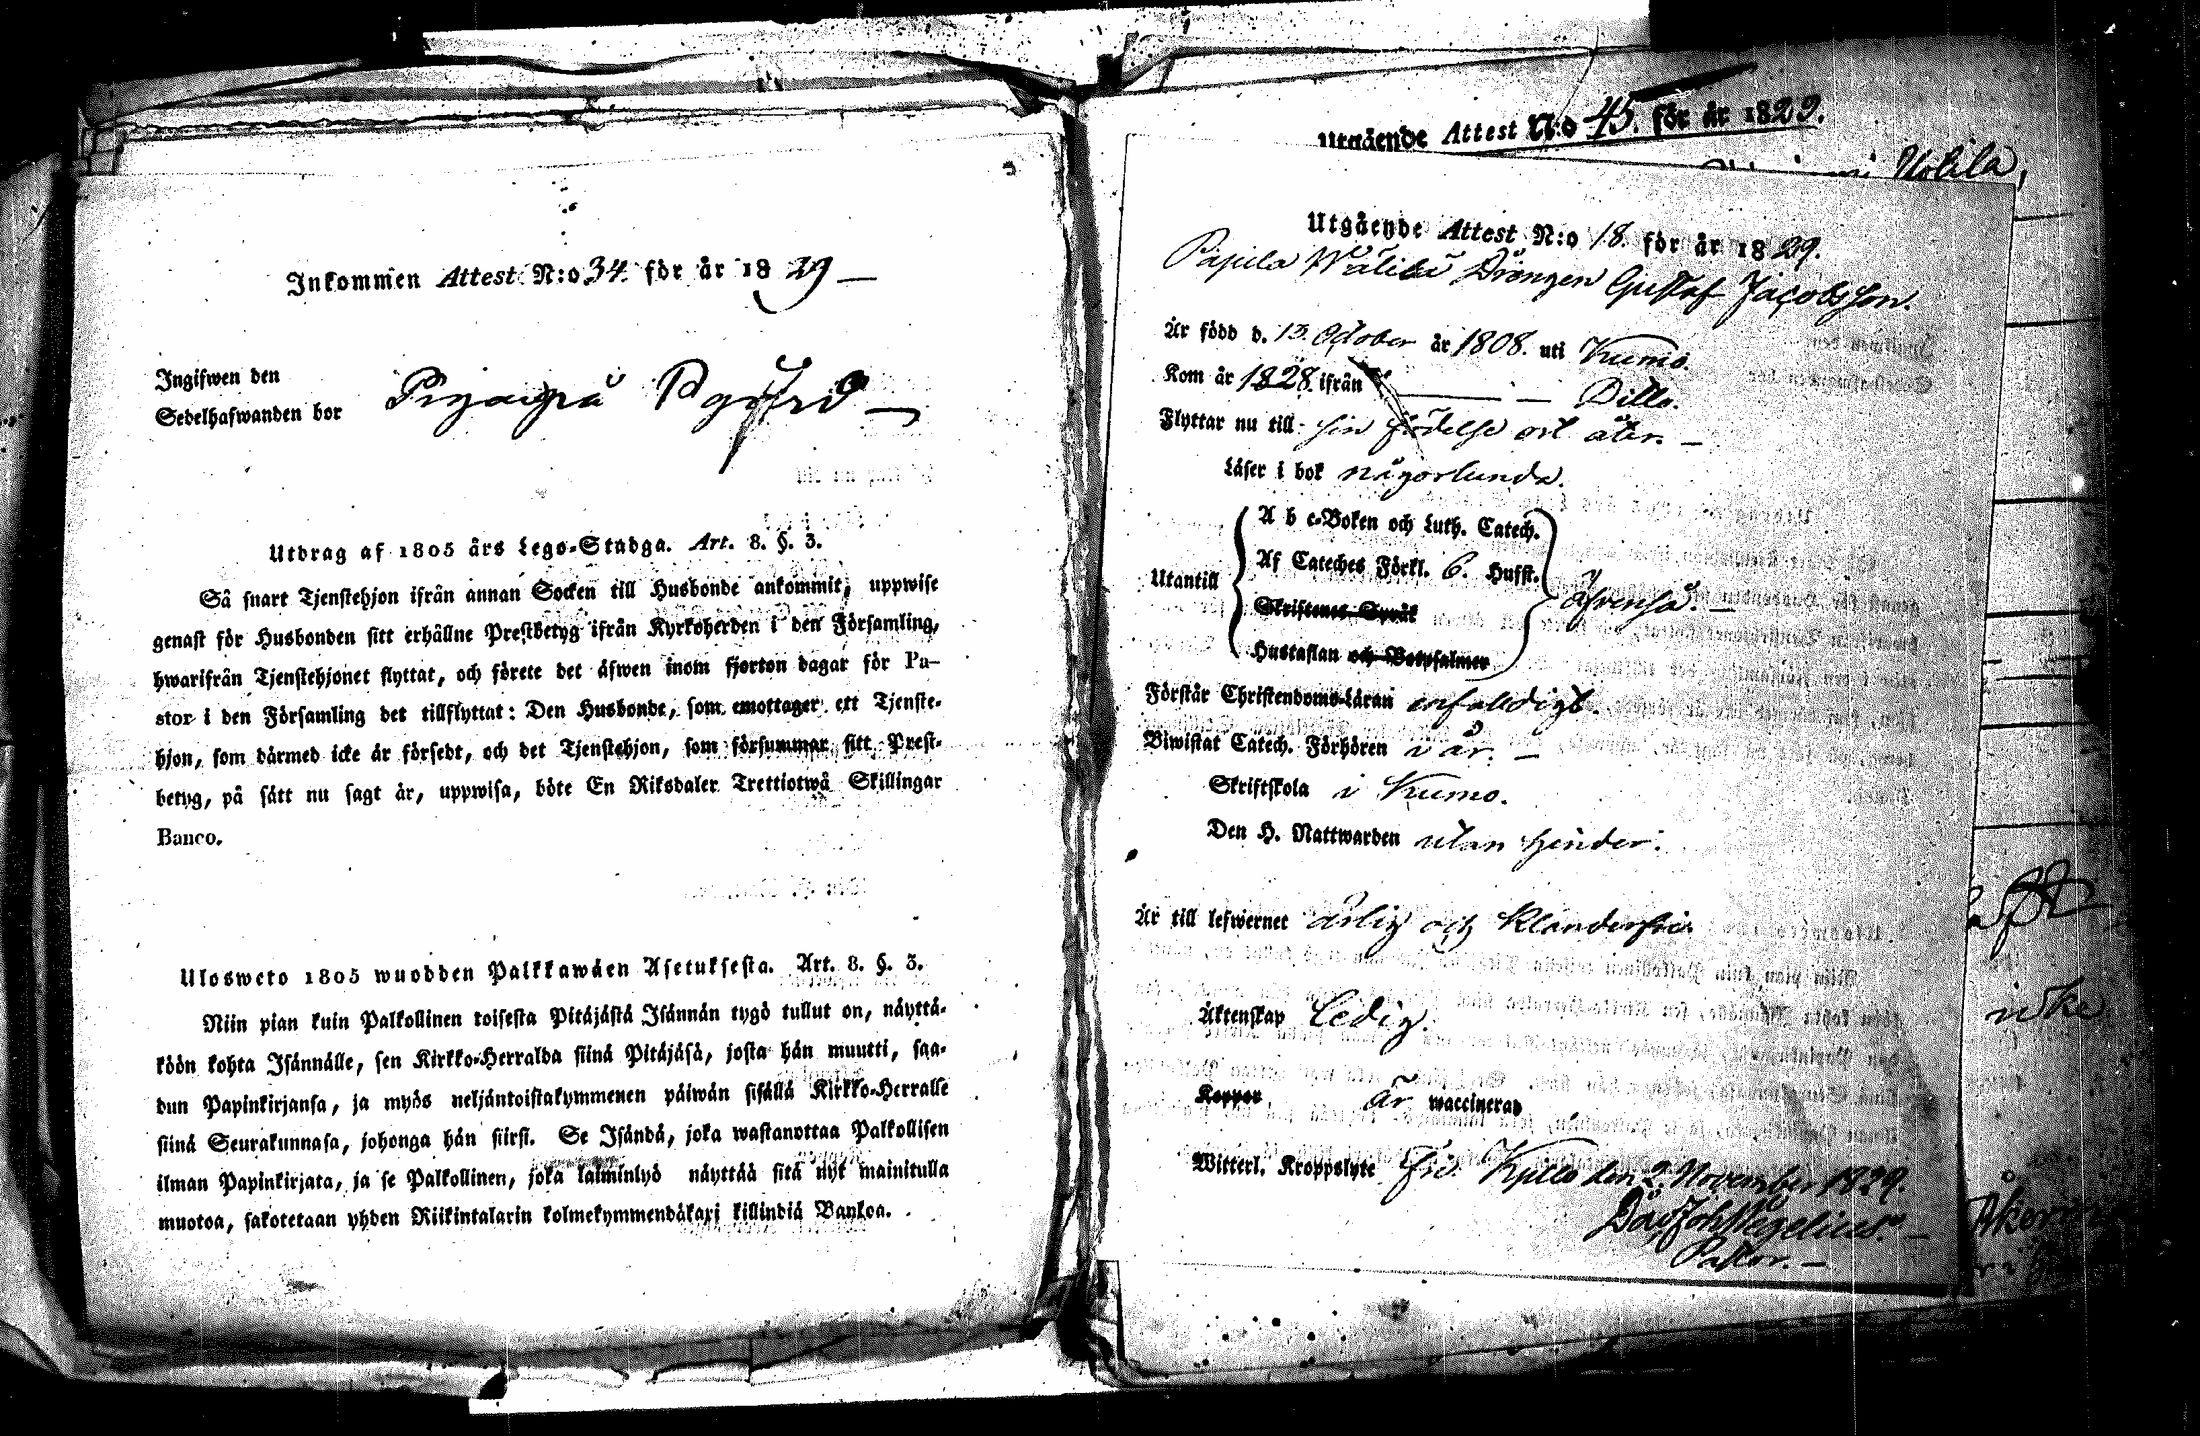 Inkommen Attest N:o 34. för år 1829 —
Ingifwen den
Sedelhafwanden bor
Utdrag af 1805 års Lego-Stadga. Art. 8. §. 3.
Så snart Tjenstehjon ifrån annan Socken till Husbonde ankommit, uppwise
genast för Husbonden sitt erhållne Prestbetyg ifrån Kyrkoherden i den Församling,
hwarifrån Tjenstehjonet flyttat, och förete det äfwen inom fjorton dagar för Pa-
stor i den Församling det tillflyttat: Den Husbonde, som emottager ett Tjenste-
hjon, som därmed icke är försedt, och det Tjenstehjon, som försummar sitt Prest-
betyg, på sätt nu sagt är, uppwisa, böte En Riksdaler Trettiotwå Skillingar
Banco.
Ulosweto 1805 wuodden Palkkawäen Asetuksesta. Art. 8. §. 3.
Niin pian kuin Palkollinen toisesta Pitäjästä Isännän tygö tullut on, näyttä-
köön kohta Isännälle, sen Kirkko-Herralda siinä Pitäjäsä, josta hän muutti, saa-
dun Papinkirjansa, ja myös neljäntoistakymmenen päiwän sisällä Kirkko-Herralle
siinä Seurakunnasa, johonga hän siirsi. Se Isändä, joka wastanottaa Palkollisen
ilman Papinkirjata, ja se Palkollinen, joka laiminlyö näyttää sitä nyt mainitulla
muotoa, sakotetaan yhden Riikintalarin kolmekymmendäkaxi killindiä Bankoa.
Utgående Attest N:o 45. för år 1829.
Uotila,
Utgående Attest N:o 18. för år 1829.
Drängen Gustaf Jacobsson.
Är född d. 13. October år 1808. uti Kumo.
Kom år 1828. ifrån — — Ditto.
Flyttar nu till sin födelse ort åter. —
Läser i bok någorlunda.
A b c-Boken och Luth. Catech.
Utantill Af Cateches Förkl. 6. Hufst. äfvenså. —
Skriftenes Språk
Hustaflan och Botpsalmer
Förstår Christendoms-Läran enfaldigt.
Biwistat Catech. Förhören i år. —
Skriftskola i Kumo.
Den H. Nattwarden utan hinder.
Är till lefwernet ärlig och klanderfri.
Äktenskap Ledig.
Koppor är waccinerad
Witterl. Kroppslyte fri. den 2. November 1829.
Pastor. —
icke